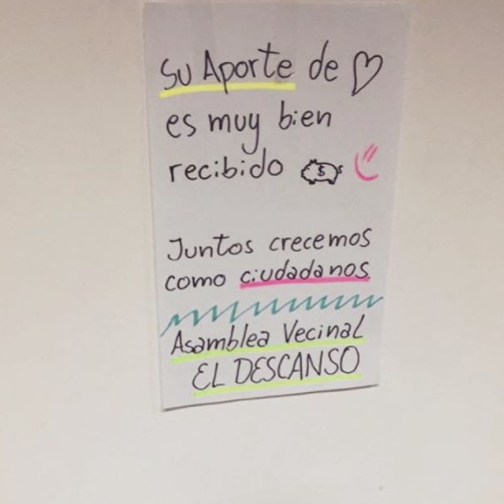 Su Aporte de ♡
es muy bien
recibido
Juntos crecemos
como ciudadanos
Asamblea Vecinal
EL DESCANSO